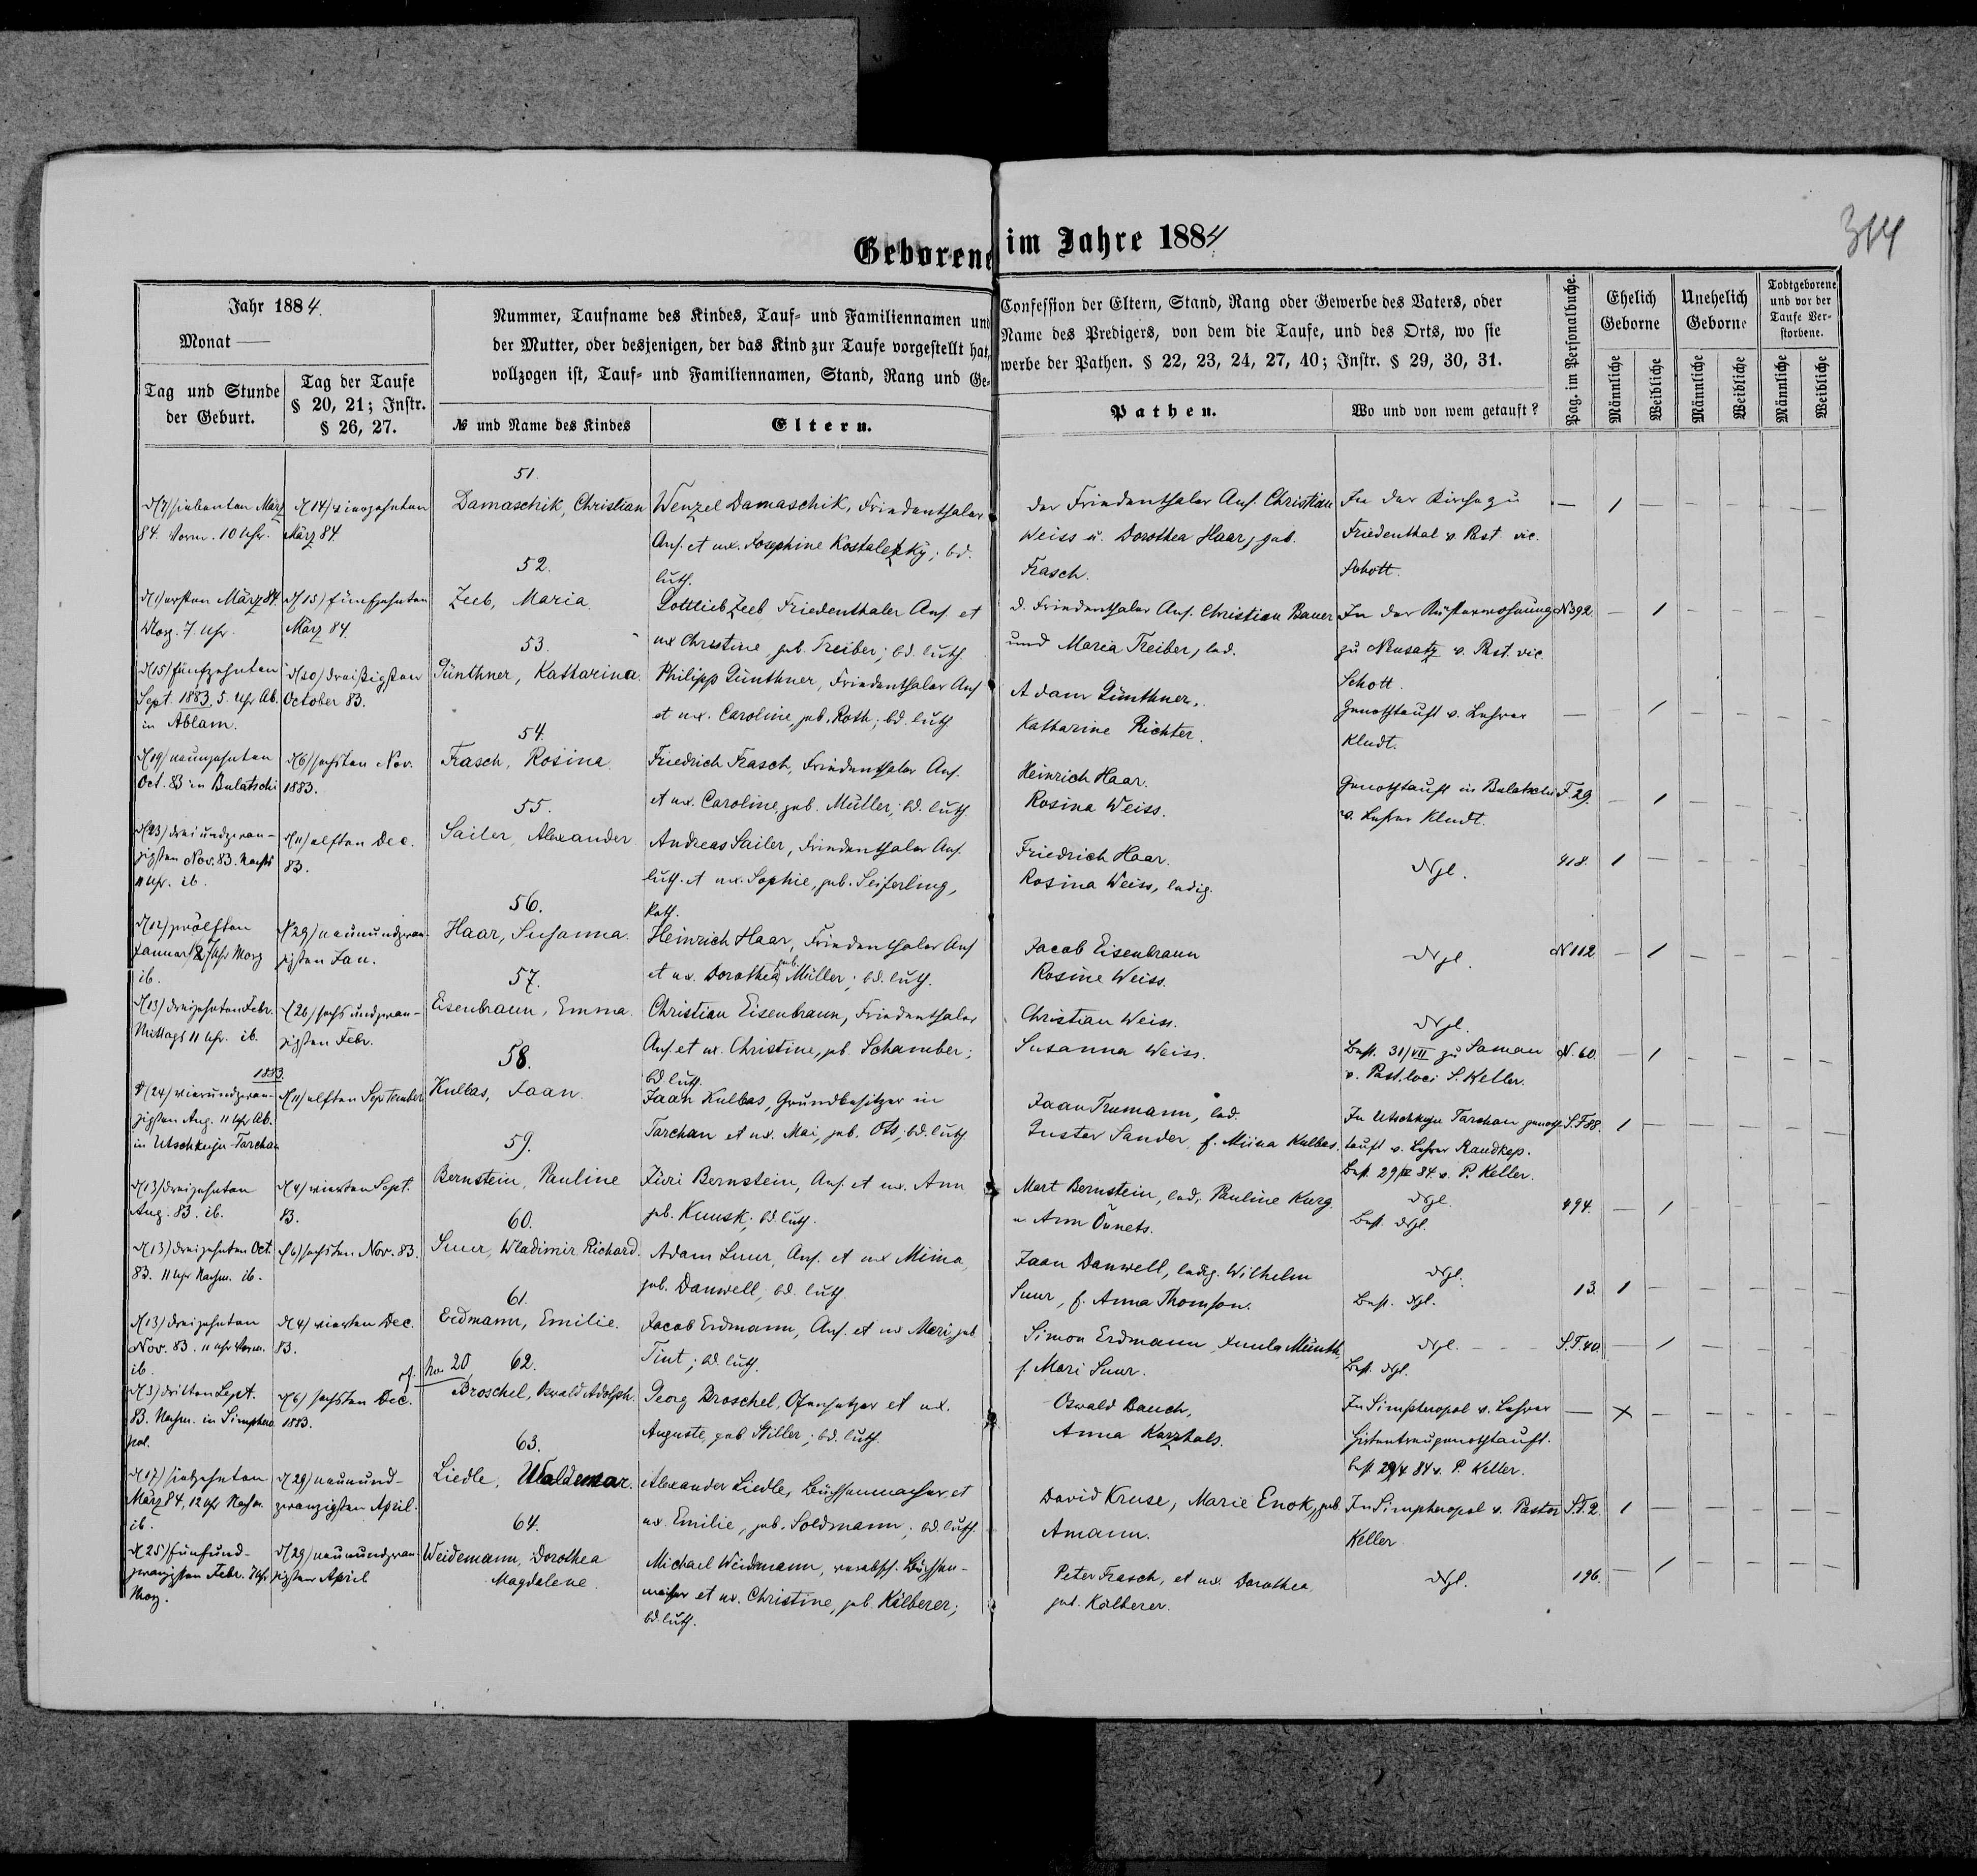 314
Geborene im Jahre 1884
Jahr 1884.
Monat —
Tag und Stunde der Geburt.
Tag der Taufe § 20, 21; Instr. § 26, 27.
Nummer, Taufname des Kindes, Tauf- und Familiennamen und
der Mutter, oder desjenigen, der das Kind zur Taufe vorgestellt hat,
vollzogen ist, Tauf- und Familiennamen, Stand, Rang und Ge-
№ und Name des Kindes
Eltern.
Confession der Eltern, Stand, Rang oder Gewerbe des Vaters, oder
Name des Predigers, von dem die Taufe, und des Orts, wo sie
werbe der Pathen. § 22, 23, 24, 27, 40; Instr. § 29, 30, 31.
Pathen.
Wo und von wem getauft?
Pag. im Personalbuche.
Ehelich Geborne
Unehelich Geborne
Todtgeborene und vor der Taufe Verstorbene.
Männliche Weibliche Männliche Weibliche Männliche Weibliche
51.
d. (7) siebenten März
84. Vorm. 10 Uhr.
d. (14) vierzehnten
März 84
Damaschik, Christian
Wenzel Damaschik, Friedenthaler
Ans. et ux. Josephine Kostaletzky; bd.
luth.
der Friedenthaler Ans. Christian
Weiss u. Dorothea Haar, geb.
Frasch.
In der Kirche zu
Friedenthal v. Past. vic.
Schott.
— 1 — — — — —
52.
d. (1) ersten März 84.
Morg. 7 Uhr.
d. (15) fünfzehnten
März 84.
Zeeb, Maria.
Gottlieb Zeeb Friedenthaler Ans. et
ux Christine, geb. Treiber; bd. luth.
d. Friedenthaler Ans. Christian Bauer
und Maria Treiber, led.
In der Küsterwohnung
zu Neusatz v. Past. vic.
Schott.
N 392. — 1 — — — —
53.
d. (15) fünfzehnten
Sept. 1883. 5 Uhr Ab.
in Ablam.
d. (30) dreißigsten
October 83.
Günthner, Katharina.
Philipp Günthner, Friedenthaler Ans
et ux. Caroline, geb. Roth; bd. luth
Adam Günthner,
Katharine Richter.
Genothtauft v. Lehrer
Kludt.
— — 1 — — — —
54.
d. (19) neunzehnten
Oct. 83 in Bulatschi
d. (6) sechsten Nov.
1883.
Frasch, Rosina.
Friedrich Frasch, Friedenthaler Ans.
et ux. Caroline, geb. Müller; bd. luth.
Heinrich Haar.
Rosina Weiss.
Genothtauft in Bulatschi
v. Lehrer Kludt.
F. 29. — 1 — — — —
55.
d. (23) dreiundzwan-
zigsten Nov. 83. Nachts
11 Uhr. ib.
d. (11) elften Dec.
83.
Sailer, Alexander
Andreas Sailer, Friedenthaler Ans.
luth. et ux. Sophie, geb. Seiferling,
kath.
Friedrich Haar.
Rosina Weiss, ledig.
dgl.
418. 1 — — — — —
56.
d. (12) zwölften
Januar Uhr Morg
ib.
d. (29) neunundzwan-
zigsten Jan.
Haar, Susanna.
Heinrich Haar, Friedenthaler Ans
et ux. Dorothea geb. Müller; bd. luth.
Jacob Eisenbraun
Rosine Weiss.
dgl.
N 112 — 1 — — — —
57.
d. (13) dreizehnten Febr.
Mittags 11 Uhr. ib.
d. (26) sechsundzwan-
zigsten Febr.
Eisenbraun, Emma.
Christian Eisenbraun, Friedenthaler
Ans. et ux. Christine, geb. Schamber;
bd. luth.
Christian Weiss.
Susanna Weiss.
dgl.
Best. 31/VII zu Saman
v. Past. loci S. Keller.
N. 60. — 1 — — — —
58.
1883.
d. (24) vierundzwan-
zigsten Aug. 11 Uhr Ab.
in Utschkuju-Tarchan
d. (11) elften September
Kulbas, Jaan.
Jaan Kulbas, Grundbesitzer in
Tarchan et ux. Mai, geb. Ots, bd. luth
Jaan Trumann, led.
Gustav Sander, f. Miina Kulbas.
In Utschkuju Tarchan genoth-
tauft v. Lehrer Randkep.
Best. 29/IV 84 v. P. Keller.
S.F 88. 1 — — — — —
59.
d. (13) dreizehnten
Aug. 83. ib.
d. (4) vierten Sept.
83.
Bernstein, Pauline
Jüri Bernstein, Ans. et ux. Ann
geb. Kuusk; bd. luth.
Mart Bernstein, led., Pauline Kurg.
u Ann Õunets.
dgl.
Best. dgl.
494. — 1 — — — —
60.
d. (13) dreizehnten Oct.
83. 11 Uhr Nachm. ib.
d. (6) sechsten Nov. 83.
Suur, Wladimir Richard.
Adam Suur, Ans. et ux Miina,
geb. Danwell, bd. luth.
Jaan Danwell, ledig. Wilhelm
Suur, f. Anna Thomson.
dgl.
Best. dgl.
13. 1 — — — — —
61.
d. (13) dreizehnten
Nov. 83. 11 Uhr Vorm.
ib.
d. (4) vierten Dec.
83.
Erdmann, Emilie.
Jacob Erdmann, Ans. et ux Mari, geb
Tint; bd. luth.
Simon Erdmann, Juula Münth,
f. Mari Suur.
dgl.
Best. dgl.
S.F. 40. — 1 — — — —
cf. No. 20 62.
d. (3) dritten Sept.
83. Nachm. in Simphero
pol.
d. (6) sechsten Dec.
1883.
Broschel, Oswald Adolph.
Georg Broschel, Ofensetzer et ux.
Auguste, geb. Stiller; bd. luth.
Oswald Dauch,
Anna Karzhals.
In Simpheropol v. Lehrer
genothtauft.
best. 29/4 84 v. P. Keller.
— × — — — — —
63.
d. (17) siebzehnten
März 84, 12 Uhr Nachm.
ib.
d. (29) neunund-
zwanzigsten April.
Liedle, Waldemar.
Alexander Liedle, Büchsenmacher, et
ux. Emilie, geb. Soldmann; bd. luth.
David Kruse, Marie Enok, geb.
Amann.
In Simpheropol v. Pastor
Keller.
S.F. 2. 1 — — — — —
64.
d. (25) fünfund-
zwanzigsten Febr. 7 Uhr
Morg.
d. (29) neunundzwan-
zigsten April
Weidemann, Dorothea
Magdalene.
Michael Weidmann, verabsch. Büchsen-
macher et ux. Christine, geb. Kälberer;
bd. luth.
Peter Frasch, et ux. Dorothea
geb. Kälberer.
dgl.
196. — 1 — — — —